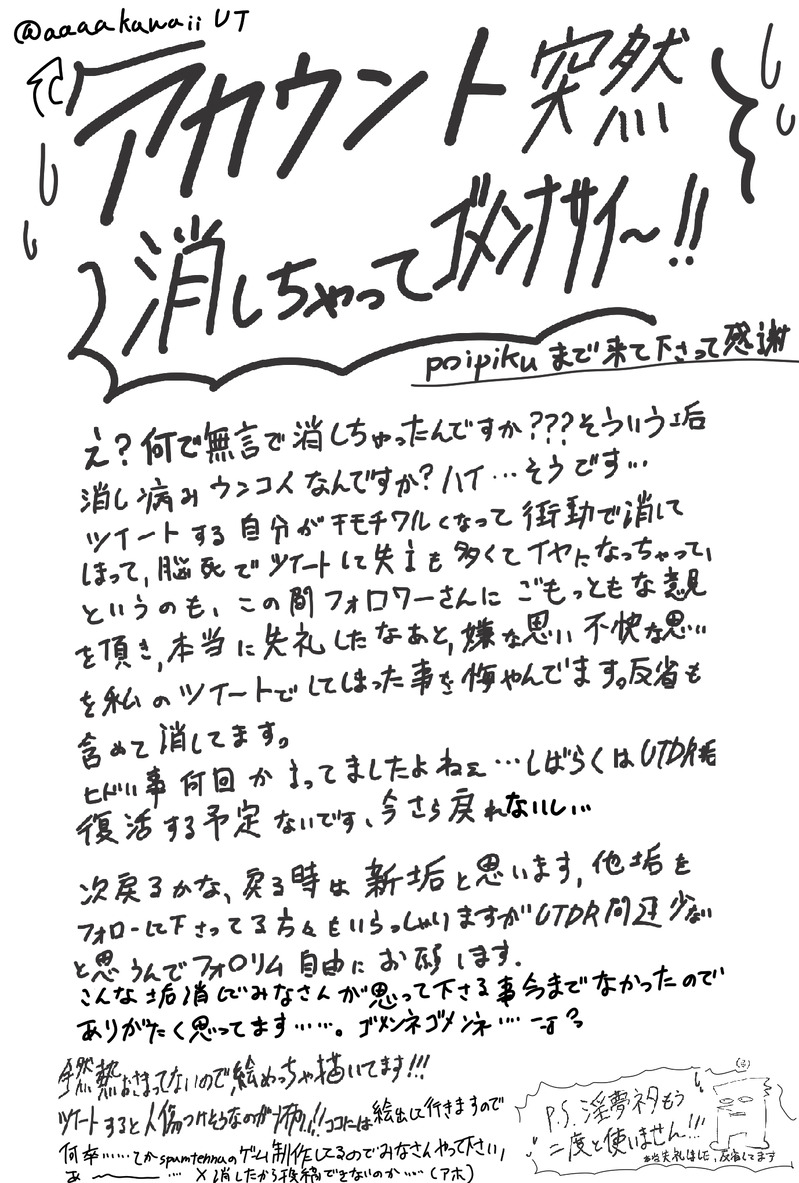 @aaaakawaiiUT
アカウント突然
消しちゃってゴメンナサイ〜!!
poipikuまで来て下さって感謝
え?何で無言で消しちゃったんですか???そういう垢
消し病みウンコ人なんですか?ハイ…そうです…
ツイートする自分がキモチワルくなって衝動で消して
しまって、脳死でツイートして失言も多くてイヤになっちゃって、
というのも、この間フォロワーさんにごもっともな意見
を頂き、本当に失礼したなあと、嫌な思い不快な思い
を私のツイートでしてしまった事を悔やんでます。反省も
含めて消してます。
ヒドい事何回か言ってましたよねぇ…しばらくはUTDR垢
復活する予定ないです、今さら戻れないし…
次戻るかな、戻る時は新垢と思います、他垢を
フォローして下さってる方々もいらっしゃりますがUTDR関連少ない
と思うんでフォロリム自由にお願します.
こんな垢消しでみなさんが思って下さる事今までなかったので
ありがたく思ってます……。ゴメンネゴメンネ…
全然熱おさまってないので絵めっちゃ描いてます!!!
ツイートすると人傷つけそうなのが怖い!!ココには絵出して行きますので
何卒……てかspamtennaのゲーム制作してるのでみなさんやって下さい,
あ〜 … X消したから投稿できないのか…(アホ)
P.S. 淫夢ネタもう
二度と使いません!!!
本当失礼しました,反省してます